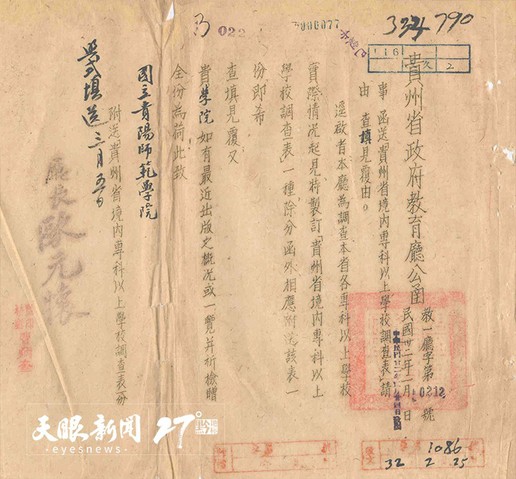 324 790
3000077
116
2
貴州省政府教育廳公函
教一廳字第 10212 號
民國卅二年一月 日
事 函送貴州省境內專科以上學校調查表請
由 查填見覆由。
逕啟者本廳為調查本省各專科以上學校
實際情況起見特製訂「貴州省境內專科以上
學校調查表」一種除分函外相應附送該表一
份即希
查填見覆又
貴學院如有最近出版之概況或一覽并祈檢贈
全份為荷此致
國立貴陽師範學院
附送貴州省境內專科以上學校調查表一份
填送 三月五日
廳長 歐元懷
1086
32 2 25
天眼新闻 27°
eyesnews